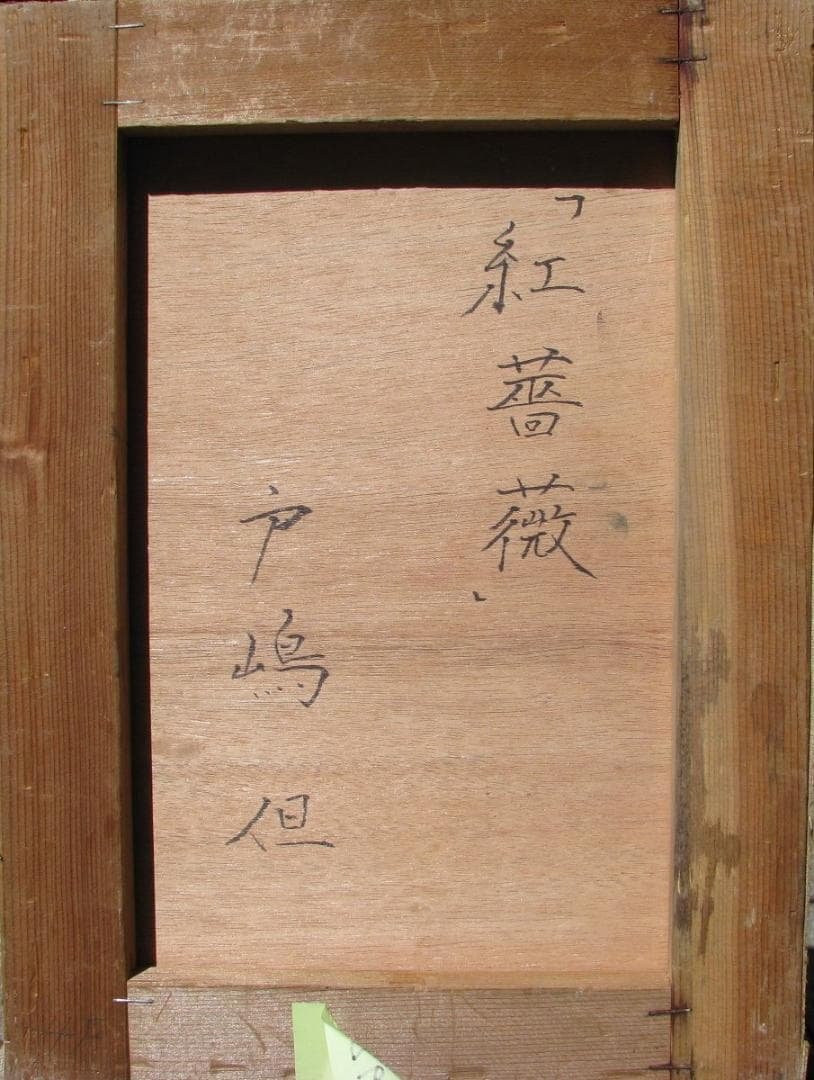 「紅薔薇」
戸嶋但